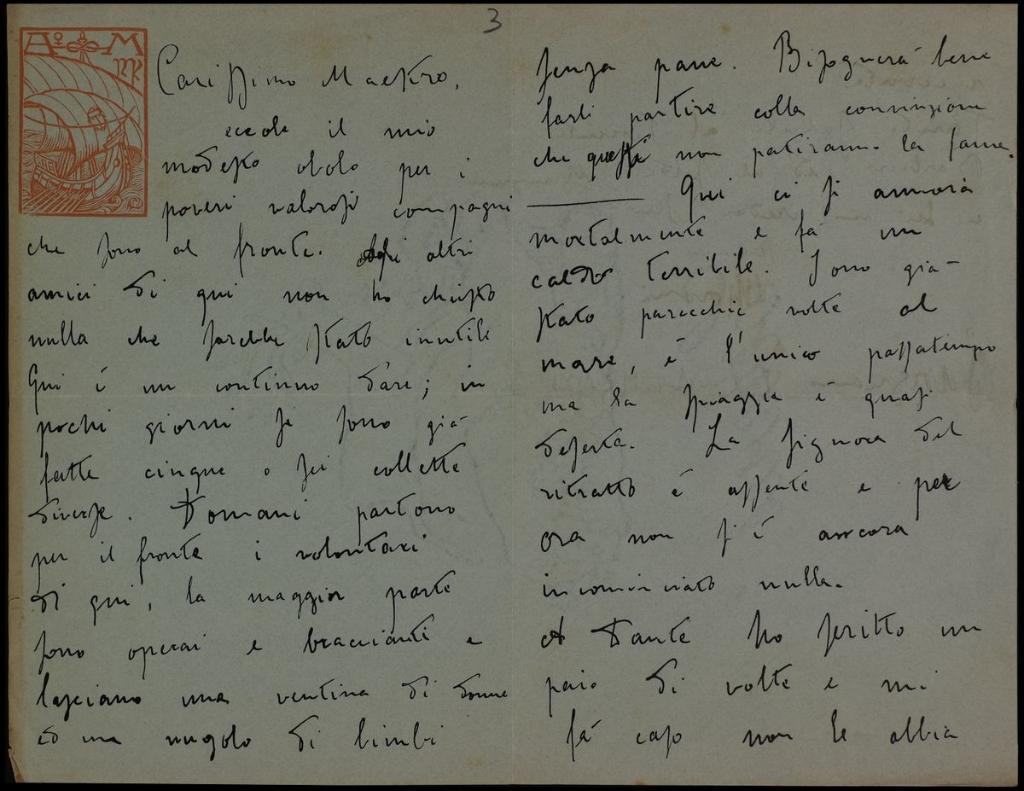 3
A M
Carissimo Maestro,
eccole il mio
modesto obolo per i
poveri valorosi compagni
che sono al fronte. altri
amici di qui non ho chiesto
nulla che sarebbe stato inutile
Qui è un continuo dare; in
pochi giorni se sono già
fatte cinque o sei collette
diverse. Domani partono
per il fronte i volontari
di qui, la maggior parte
sono operai e braccianti e
lasciano una ventina di donne
ed una nugolo di bimbi
senza pane. Bisognerà bene
farli partire colla convinzione
che questi non patiranno la fame.
Qui ci si annoia
mortalmente e fa un
caldo terribile. Sono già
stato parecchie volte al
mare, è l'unico passatempo
ma la spiaggia è quasi
deserta. La signora del
ritratto è assente e per
ora non si è ancora
incominciato nulla.
A Dante ho scritto un
paio di volte e mi
fà caso non le abbia